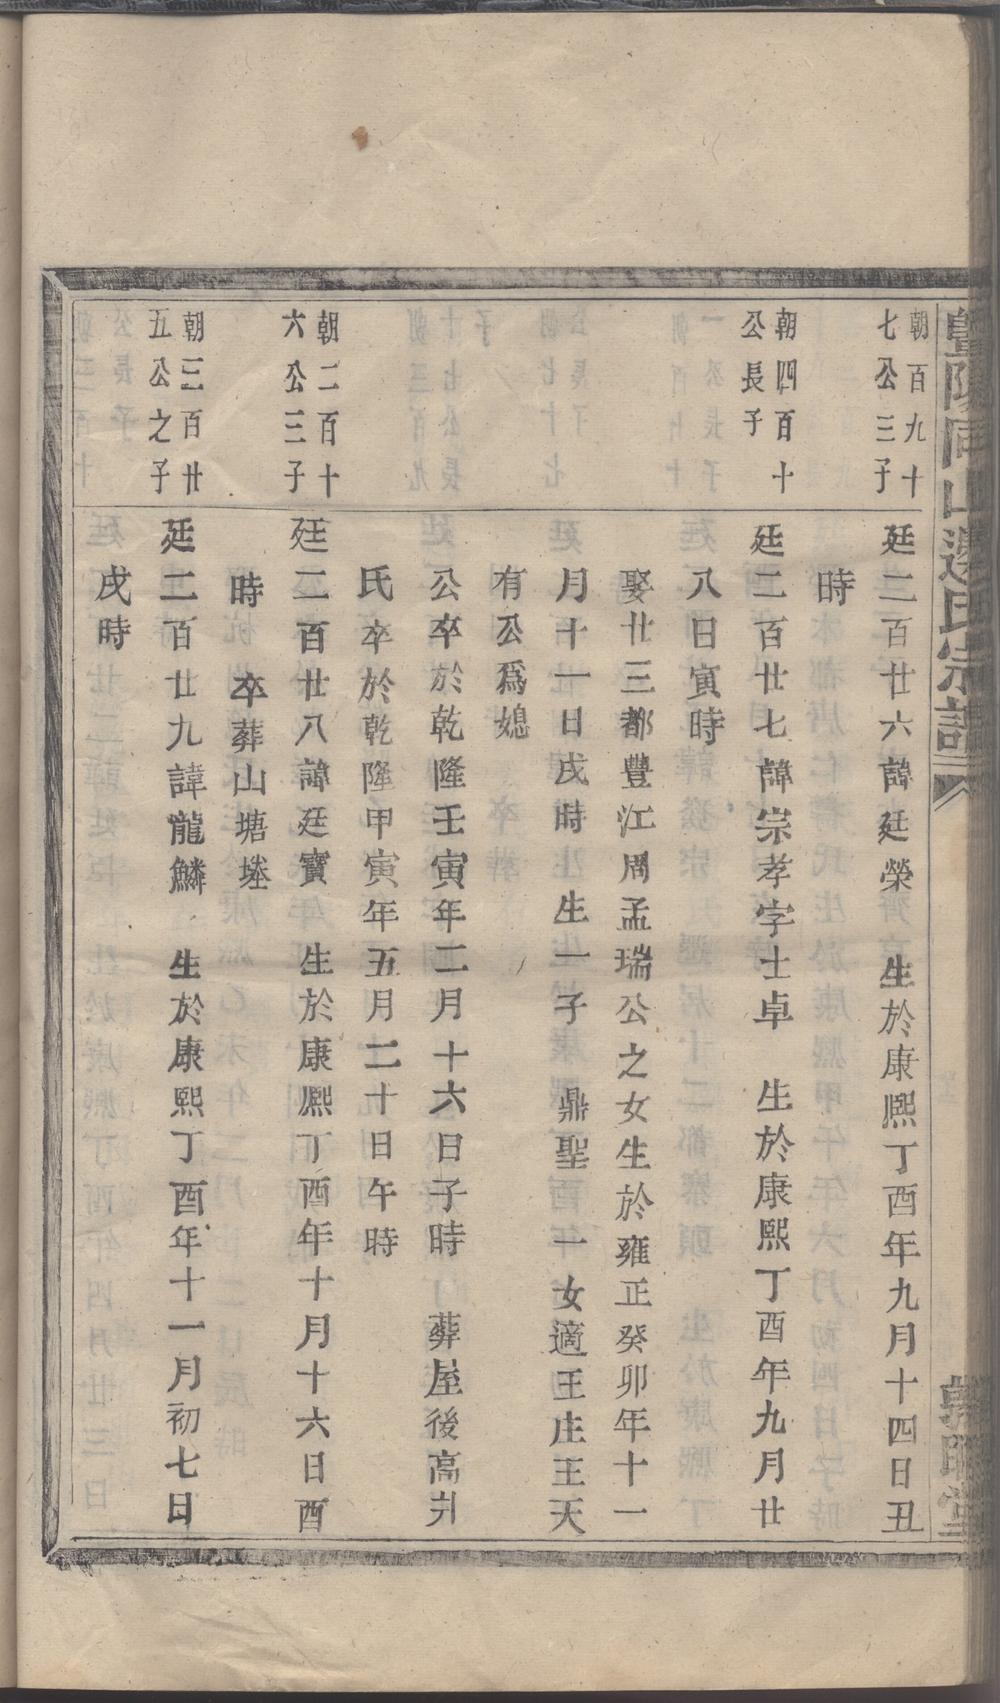 暨陽同山邊氏宗譜
敦睦堂
朝百九十
七公三子
廷二百廿六諱廷榮 生於康熙丁酉年九月十四日丑
時
朝四百十
公長子
廷二百廿七諱宗孝字士卓 生於康熙丁酉年九月廿
八日寅時
娶廿三都豐江周孟瑞公之女生於雍正癸卯年十一
月十一日戌時 生一子 鼎聖 一女適王庄王天
有公爲媳
公卒於乾隆壬寅年二月十六日子時 葬屋後高爿
氏卒於乾隆甲寅年五月二十日午時
朝二百十
六公三子
廷二百廿八諱廷寳 生於康熙丁酉年十月十六日酉
時 卒葬山塘塂
朝三百廿
五公之子
廷二百廿九諱龍鱗 生於康熙丁酉年十一月初七日
戌時